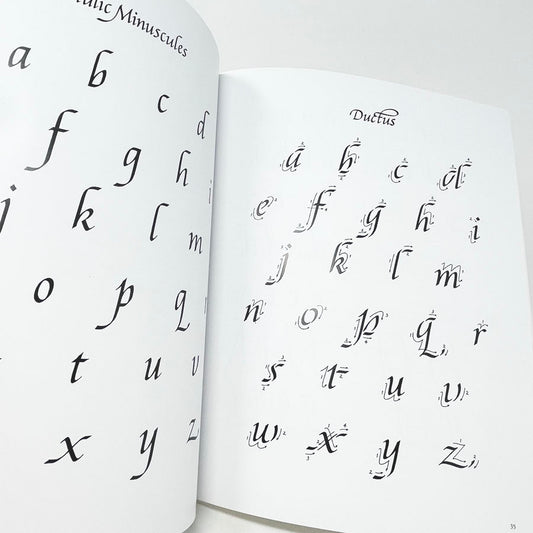 Italic Minuscules
a b c d
f g h i
j k l m
o p q
t u v
x y z
Ductus
a b c d
e f g h i
j k l m
n o p q r
s t u v
w x y z
35